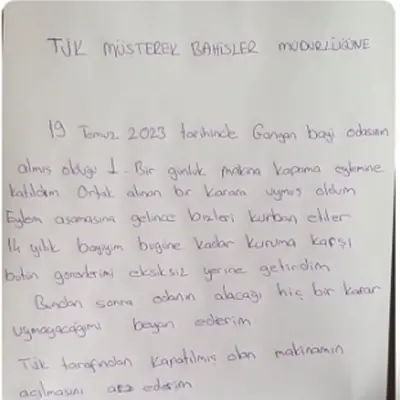 TJK MÜSTEREK BAHİSLER MÜDÜRLÜĞÜNE
19 Temmuz 2023 tarihinde Ganyan bayi odasının
almış olduğu 1. Bir günlük makina kapama eylemine
katıldım. Ortak alınan bir karara uymuş oldum
Eylem aşamasına gelince bizleri kurban ettiler
14 yıllık bayiyim bugüne kadar kuruma karşı
bütün görevlerimi eksiksiz yerine getirdim
Bundan sonra odanın alacağı hiç bir karar
uymayacağımı beyan ederim
TJK tarafından kapatılmış olan makinamın
açılmasını arz ederim